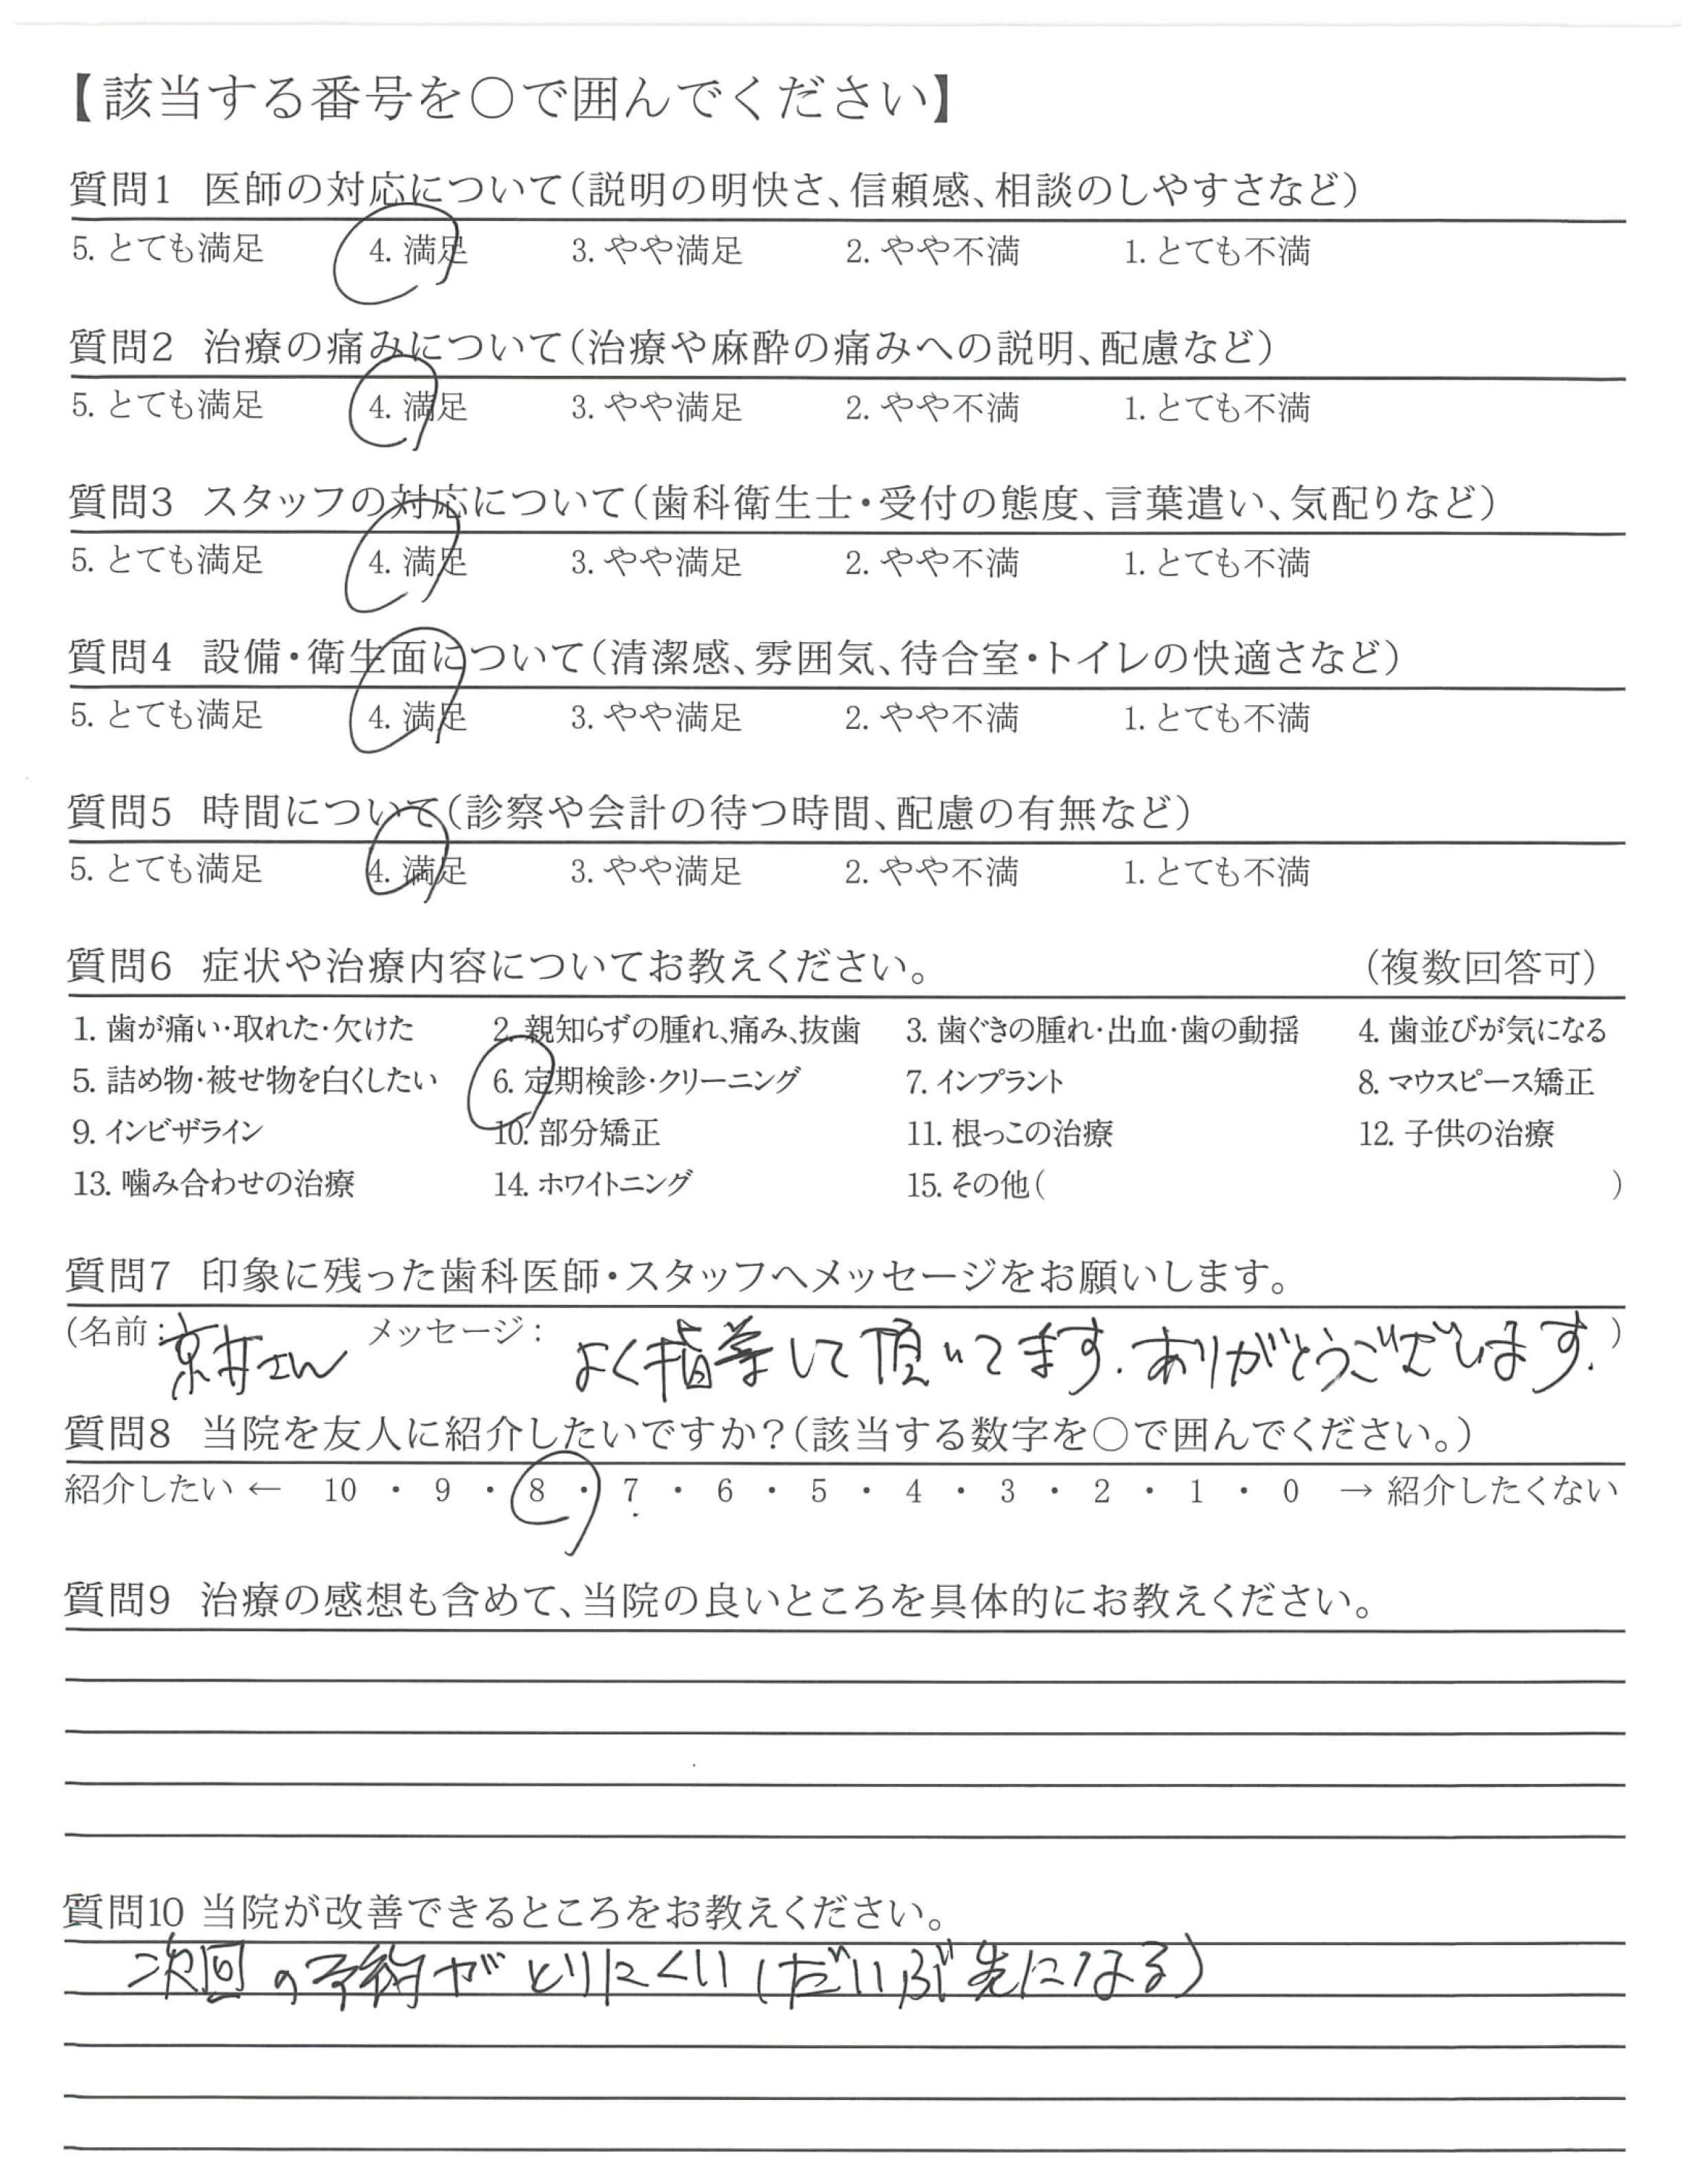 【該当する番号を〇で囲んでください】
質問1 医師の対応について(説明の明快さ、信頼感、相談のしやすさなど)
5. とても満足 4. 満足 3. やや満足 2. やや不満 1. とても不満
質問2 治療の痛みについて(治療や麻酔の痛みへの説明、配慮など)
5. とても満足 4. 満足 3. やや満足 2. やや不満 1. とても不満
質問3 スタッフの対応について(歯科衛生士・受付の態度、言葉遣い、気配りなど)
5. とても満足 4. 満足 3. やや満足 2. やや不満 1. とても不満
質問4 設備・衛生面について(清潔感、雰囲気、待合室・トイレの快適さなど)
5. とても満足 4. 満足 3. やや満足 2. やや不満 1. とても不満
質問5 時間について(診察や会計の待つ時間、配慮の有無など)
5. とても満足 4. 満足 3. やや満足 2. やや不満 1. とても不満
質問6 症状や治療内容についてお教えください。 (複数回答可)
1. 歯が痛い・取れた・欠けた 2. 親知らずの腫れ、痛み、抜歯 3. 歯ぐきの腫れ・出血・歯の動揺 4. 歯並びが気になる
5. 詰め物・被せ物を白くしたい 6. 定期検診・クリーニング 7. インプラント 8. マウスピース矯正
9. インビザライン 10. 部分矯正 11. 根っこの治療 12. 子供の治療
13. 噛み合わせの治療 14. ホワイトニング 15. その他( )
質問7 印象に残った歯科医師・スタッフへメッセージをお願いします。
(名前: 京井さん メッセージ: よく指導して頂いてます. ありがとうございます. )
質問8 当院を友人に紹介したいですか?(該当する数字を〇で囲んでください。)
紹介したい ← 10 ・ 9 ・ 8 ・ 7 ・ 6 ・ 5 ・ 4 ・ 3 ・ 2 ・ 1 ・ 0 → 紹介したくない
質問9 治療の感想も含めて、当院の良いところを具体的にお教えください。
質問10 当院が改善できるところをお教えください。
次回の予約がとりにくい(だいぶ先になる)